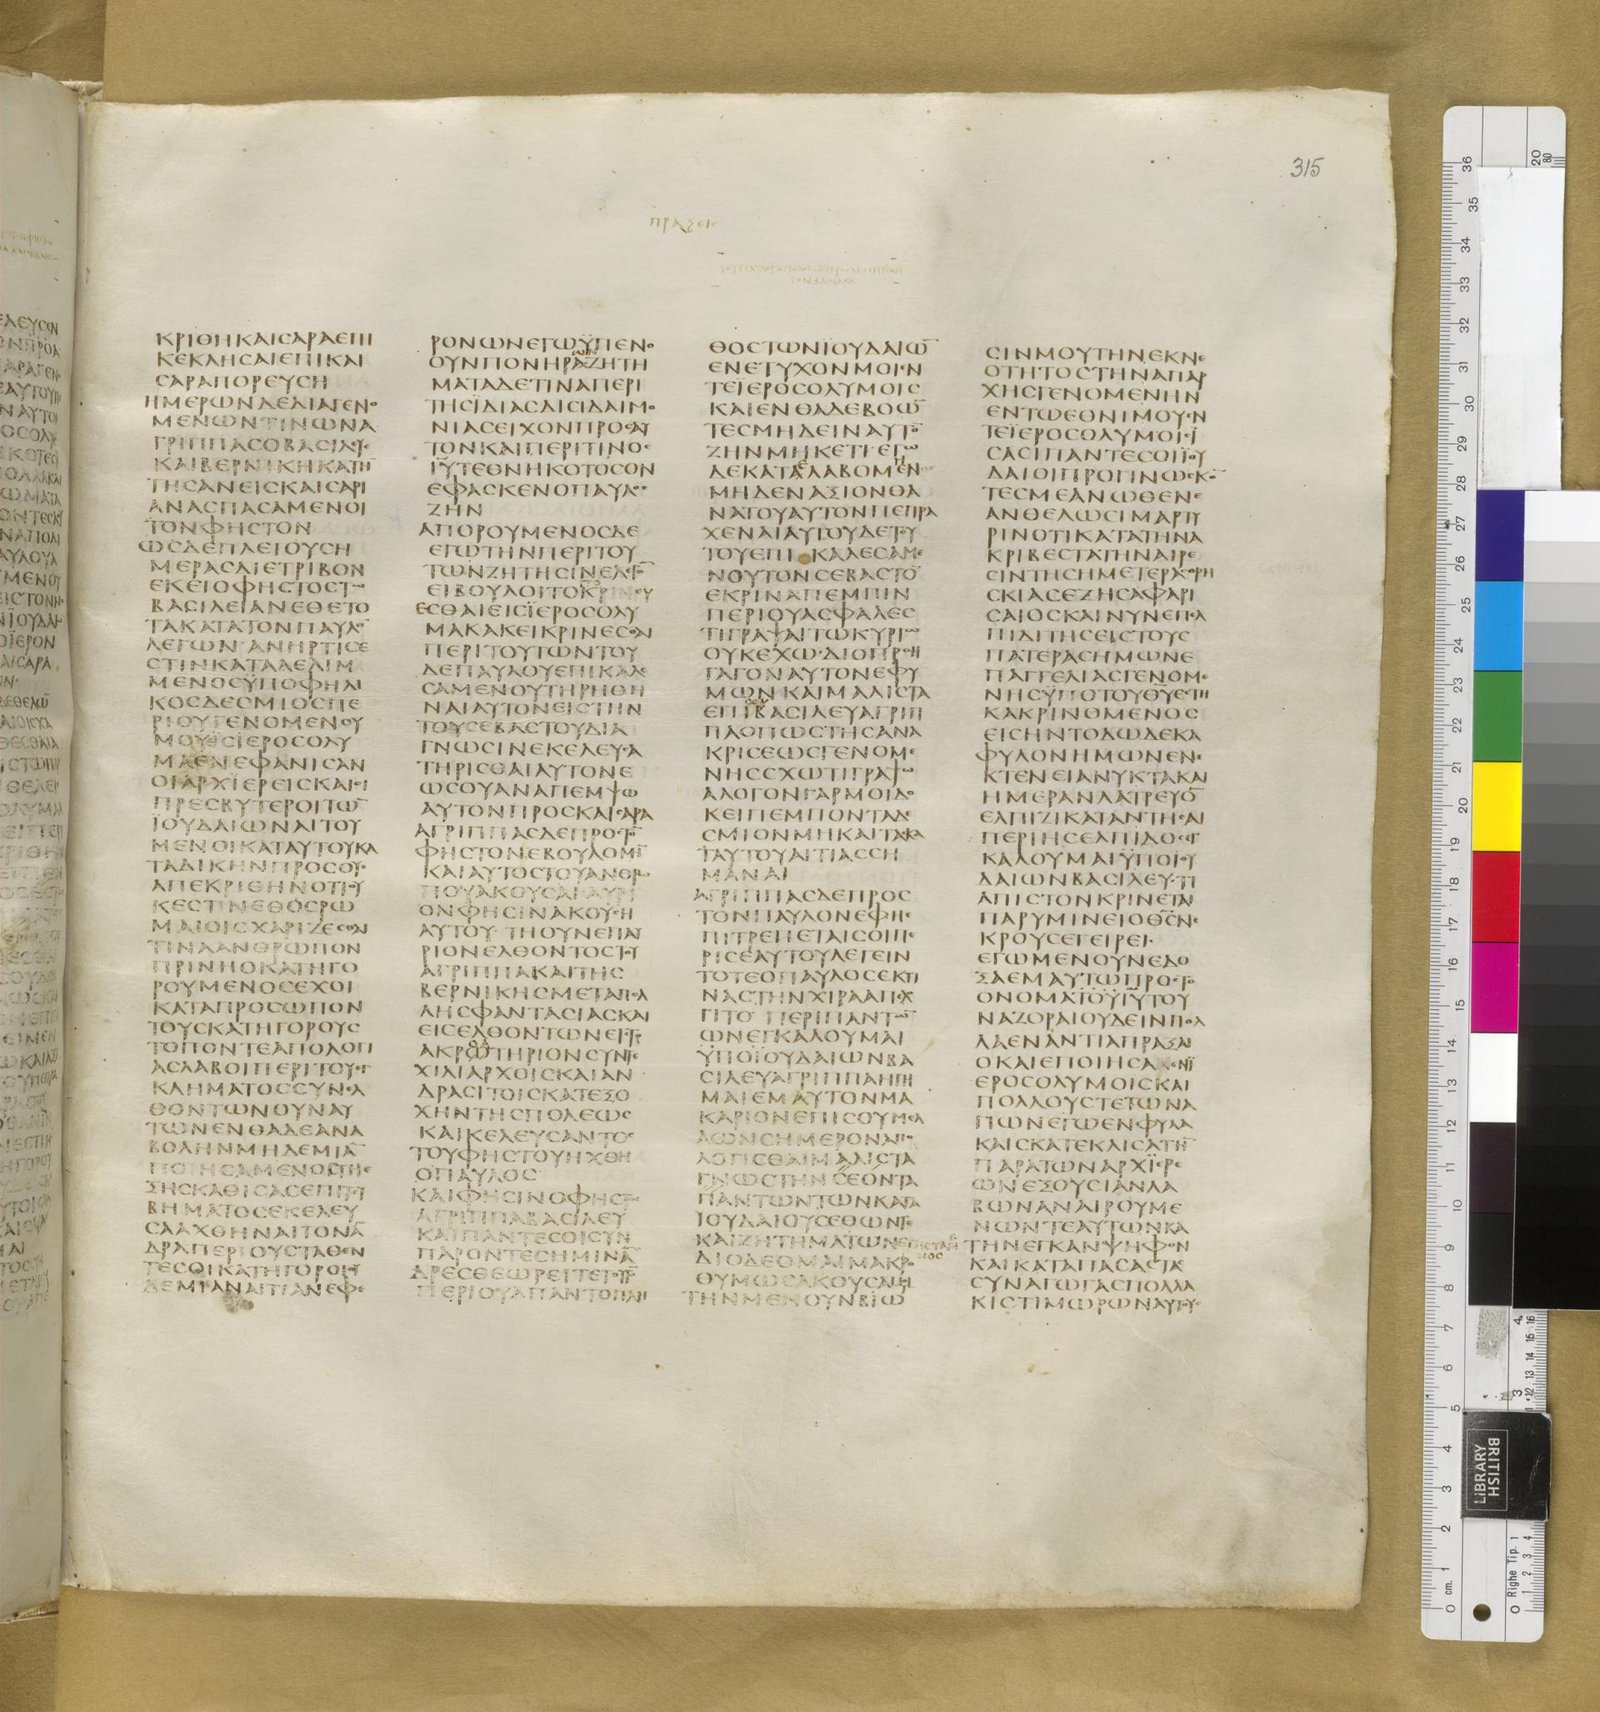 315
ΠΡΑΞΕΙϹ
ΚΡΙΘΗΚΑΙϹΑΡΑΕΠΙ
ΚΕΚΛΗϹΑΙΕΠΙΚΑΙ
ϹΑΡΑΠΟΡΕΥϹΗ
ΗΜΕΡΩΝΔΕΔΙΑΓΕΝΟ
ΜΕΝΩΝΤΙΝΩΝΑ
ΓΡΙΠΠΑϹΟΒΑϹΙΛΕΥϹ
ΚΑΙΒΕΡΝΙΚΗΚΑΤΗ̅
ΤΗϹΑΝΕΙϹΚΑΙϹΑΡΙ
ΑΝΑϹΠΑϹΑΜΕΝΟΙ
ΤΟΝΦΗϹΤΟΝ
ΩϹΔΕΠΛΕΙΟΥϹΗ
ΜΕΡΑϹΔΙΕΤΡΙΒΟΝ
ΕΚΕΙΟΦΗϹΤΟϹΤΩ
ΒΑϹΙΛΕΙΑΝΕΘΕΤΟ
ΤΑΚΑΤΑΤΟΝΠΑΥΛΟ̅
ΛΕΓΩΝ·ΑΝΗΡΤΙϹΕ
ϹΤΙΝΚΑΤΑΛΕΛΙΜ
ΜΕΝΟϹΫΠΟΦΗΛΙ
ΚΟϹΔΕϹΜΙΟϹΠΕ
ΡΙΟΥΓΕΝΟΜΕΝΟΥ
ΜΟΥΕΙϹΪΕΡΟϹΟΛΥ
ΜΑΕΝΕΦΑΝΙϹΑΝ
ΟΙΑΡΧΙΕΡΕΙϹΚΑΙΟΙ
ΠΡΕϹΒΥΤΕΡΟΙΤΩ̅
ΪΟΥΔΑΙΩΝΑΙΤΟΥ
ΜΕΝΟΙΚΑΤΑΥΤΟΥΚΑ
ΤΑΔΙΚΗΝΠΡΟϹΟΥϹ
ΑΠΕΚΡΙΘΗΝΟΤΙΟΥ
ΚΕϹΤΙΝΕΘΟϹΡΩ
ΜΑΙΟΙϹΧΑΡΙΖΕϹΘΑΙ
ΤΙΝΑΑΝΘΡΩΠΟΝ
ΠΡΙΝΗΟΚΑΤΗΓΟ
ΡΟΥΜΕΝΟϹΕΧΟΙ
ΚΑΤΑΠΡΟϹΩΠΟΝ
ΤΟΥϹΚΑΤΗΓΟΡΟΥϹ
ΤΟΠΟΝΤΕΑΠΟΛΟΓΙ
ΑϹΛΑΒΟΙΠΕΡΙΤΟΥΕΓ
ΚΛΗΜΑΤΟϹϹΥΝΕΛ
ΘΟΝΤΩΝΟΥΝΑΥ
ΤΩΝΕΝΘΑΔΕΑΝΑ
ΒΟΛΗΝΜΗΔΕΜΙΑ̅
ΠΟΙΗϹΑΜΕΝΟϹΤΗΕ
ΞΗϹΚΑΘΙϹΑϹΕΠΙΤΟΥ
ΒΗΜΑΤΟϹΕΚΕΛΕΥ
ϹΑΑΧΘΗΝΑΙΤΟΝΑ̅
ΔΡΑΠΕΡΙΟΥϹΤΑΘΕΝ
ΤΕϹΟΙΚΑΤΗΓΟΡΟΙΟΥ
ΔΕΜΙΑΝΑΙΤΙΑΝΕΦΕ
ΡΟΝΩΝΕΓΩΫΠΕΝΟ
ΟΥΝΠΟΝΗΡΑΖΗΤΗ
ΜΑΤΑΔΕΤΙΝΑΠΕΡΙ
ΤΗϹΪΔΙΑϹΔΙϹΙΔΑΙΜΟ
ΝΙΑϹΕΙΧΟΝΠΡΟϹΑΥ
ΤΟΝΚΑΙΠΕΡΙΤΙΝΟϹ
ΙΥ̅ΤΕΘΝΗΚΟΤΟϹΟΝ
ΕΦΑϹΚΕΝΟΠΑΥΛΟϹ
ΖΗΝ
ΑΠΟΡΟΥΜΕΝΟϹΔΕ
ΕΓΩΤΗΝΠΕΡΙΤΟΥ
ΤΩΝΖΗΤΗϹΙΝΕΛΕΓΟ̅
ΕΙΒΟΥΛΟΙΤΟΚΡΙΝΕϹΘΑΙ
ΕϹΘΑΙΕΙϹΪΕΡΟϹΟΛΥ
ΜΑΚΑΚΕΙΚΡΙΝΕϹΘΑΙ
ΠΕΡΙΤΟΥΤΩΝΤΟΥ
ΔΕΠΑΥΛΟΥΕΠΙΚΑΛΕ
ϹΑΜΕΝΟΥΤΗΡΗΘΗ
ΝΑΙΑΥΤΟΝΕΙϹΤΗΝ
ΤΟΥϹΕΒΑϹΤΟΥΔΙΑ
ΓΝΩϹΙΝΕΚΕΛΕΥϹΑ
ΤΗΡΙϹΘΑΙΑΥΤΟΝΕ
ΩϹΟΥΑΝΑΠΕΜΨΩ
ΑΥΤΟΝΠΡΟϹΚΑΙϹΑΡΑ
ΑΓΡΙΠΠΑϹΔΕΠΡΟϹΤΟ̅
ΦΗϹΤΟΝΕΒΟΥΛΟΜΗ̅
ΚΑΙΑΥΤΟϹΤΟΥΑΝΘΡΩ
ΠΟΥΑΚΟΥϹΑΙΑΥΡΙ
ΟΝΦΗϹΙΝΑΚΟΥϹΗ
ΑΥΤΟΥ·ΤΗΟΥΝΕΠΑΥ
ΡΙΟΝΕΛΘΟΝΤΟϹΤΟΥ
ΑΓΡΙΠΠΑΚΑΙΤΗϹ
ΒΕΡΝΙΚΗϹΜΕΤΑΠΟΛ
ΛΗϹΦΑΝΤΑϹΙΑϹΚΑΙ
ΕΙϹΕΛΘΟΝΤΩΝΕΙϹΤΟ
ΑΚΡΩΤΗΡΙΟΝϹΥΝΤΕ
ΧΙΛΙΑΡΧΟΙϹΚΑΙΑΝ
ΔΡΑϹΙΤΟΙϹΚΑΤΕΞΟ
ΧΗΝΤΗϹΠΟΛΕΩϹ
ΚΑΙΚΕΛΕΥϹΑΝΤΟϹ
ΤΟΥΦΗϹΤΟΥΗΧΘΗ
ΟΠΑΥΛΟϹ
ΚΑΙΦΗϹΙΝΟΦΗϹΤΟϹ
ΑΓΡΙΠΠΑΒΑϹΙΛΕΥ
ΚΑΙΠΑΝΤΕϹΟΙϹΥΝ
ΠΑΡΟΝΤΕϹΗΜΙΝΑ̅
ΔΡΕϹΘΕΩΡΕΙΤΕΤΟΥΤΟ̅
ΠΕΡΙΟΥΑΠΑΝΤΟΠΛΗ
ΘΟϹΤΩΝΪΟΥΔΑΙΩ̅
ΕΝΕΤΥΧΟΝΜΟΙΕΝ
ΤΕΪΕΡΟϹΟΛΥΜΟΙϹ
ΚΑΙΕΝΘΑΔΕΒΟΩ̅
ΤΕϹΜΗΔΕΙΝΑΥΤΟ̅
ΖΗΝΜΗΚΕΤΙ·ΕΓΩ
ΔΕΚΑΤΑΛΑΒΟΜΕΝΟϹ
ΜΗΔΕΝΑΞΙΟΝΘΑ
ΝΑΤΟΥΑΥΤΟΝΠΕΠΡΑ
ΧΕΝΑΙΑΥΤΟΥΔΕΤΟΥ
ΤΟΥΕΠΙΚΑΛΕϹΑΜΕ
ΝΟΥΤΟΝϹΕΒΑϹΤΟ̅
ΕΚΡΙΝΑΠΕΜΠΙΝ
ΠΕΡΙΟΥΑϹΦΑΛΕϹ
ΤΙΓΡΑΨΑΙΤΩΚΥΡΙΩ
ΟΥΚΕΧΩ·ΔΙΟΠΡΟΗ
ΓΑΓΟΝΑΥΤΟΝΕΦΥ
ΜΩΝΚΑΙΜΑΛΙϹΤΑ
ΕΠΙΒΑϹΙΛΕΥΑΓΡΙΠ
ΠΑΟΠΩϹΤΗϹΑΝΑ
ΚΡΙϹΕΩϹΓΕΝΟΜΕ
ΝΗϹϹΧΩΤΙΓΡΑΨΩ
ΑΛΟΓΟΝΓΑΡΜΟΙΔΟ
ΚΕΙΠΕΜΠΟΝΤΑΔΕ
ϹΜΙΟΝΜΗΚΑΙΤΑΚΑ
ΤΑΥΤΟΥΑΙΤΙΑϹϹΗ
ΜΑΝΑΙ
ΑΓΡΙΠΠΑϹΔΕΠΡΟϹ
ΤΟΝΠΑΥΛΟΝΕΦΗΕ
ΠΙΤΡΕΠΕΤΑΙϹΟΙΠΕ
ΡΙϹΕΑΥΤΟΥΛΕΓΕΙΝ
ΤΟΤΕΟΠΑΥΛΟϹΕΚΤΙ
ΝΑϹΤΗΝΧΙΡΑΑΠΕΛΟΓΙ
ΓΙΤΟ·ΠΕΡΙΠΑΝΤΩ̅
ΩΝΕΓΚΑΛΟΥΜΑΙ
ΫΠΟΪΟΥΔΑΙΩΝΒΑ
ϹΙΛΕΥΑΓΡΙΠΠΑΗΓΗ
ΜΑΙΕΜΑΥΤΟΝΜΑ
ΚΑΡΙΟΝΕΠΙϹΟΥΜΕΛ
ΛΩΝϹΗΜΕΡΟΝΑΠΟ
ΛΟΓΙϹΘΑΙΜΑΛΙϹΤΑ
ΓΝΩϹΤΗΝϹΕΟΝΤΑ
ΠΑΝΤΩΝΤΩΝΚΑΤΑ
ΪΟΥΔΑΙΟΥϹΕΘΩΝΤΕ
ΚΑΙΖΗΤΗΜΑΤΩΝ
ΔΙΟΔΕΟΜΑΙΜΑΚΡΟ
ΘΥΜΩϹΑΚΟΥϹΑΙΜΟΥ
ΤΗΝΜΕΝΟΥΝΒΙΩ
ϹΙΝΜΟΥΤΗΝΕΚΝΕ
ΟΤΗΤΟϹΤΗΝΑΠΑΡ
ΧΗϹΓΕΝΟΜΕΝΗΝ
ΕΝΤΩΕΘΝΙΜΟΥΕΝ
ΤΕΪΕΡΟϹΟΛΥΜΟΙϹΪ
ϹΑϹΙΠΑΝΤΕϹΟΙΪΟΥ
ΔΑΙΟΙΠΡΟΓΙΝΩϹΚΟ̅
ΤΕϹΜΕΑΝΩΘΕΝΕ
ΑΝΘΕΛΩϹΙΜΑΡΤΥ
ΡΙΝΟΤΙΚΑΤΑΤΗΝΑ
ΚΡΙΒΕϹΤΑΤΗΝΑΙΡΕ
ϹΙΝΤΗϹΗΜΕΤΕΡΑϹΘΡΗ
ϹΚΙΑϹΕΖΗϹΑΦΑΡΙ
ϹΑΙΟϹΚΑΙΝΥΝΕΠΕΛ
ΠΙΔΙΤΗϹΕΙϹΤΟΥϹ
ΠΑΤΕΡΑϹΗΜΩΝΕ
ΠΑΓΓΕΛΙΑϹΓΕΝΟΜΕ
ΝΗϹΫΠΟΤΟΥΘΥ̅ΕϹΤΗ
ΚΑΚΡΙΝΟΜΕΝΟϹ
ΕΙϹΗΝΤΟΔΩΔΕΚΑ
ΦΥΛΟΝΗΜΩΝΕΝΕ
ΚΤΕΝΕΙΑΝΥΚΤΑΚΑΙ
ΗΜΕΡΑΝΛΑΤΡΕΥΟ̅
ΕΛΠΙΖΙΚΑΤΑΝΤΗϹΑΙ
ΠΕΡΙΗϹΕΛΠΙΔΟϹΕΓ
ΚΑΛΟΥΜΑΙΫΠΟΪΟΥ
ΔΑΙΩΝΒΑϹΙΛΕΥ·ΤΙ
ΑΠΙϹΤΟΝΚΡΙΝΕΤΑΙ
ΠΑΡΥΜΙΝΕΙΟΘϹ̅ΝΕ
ΚΡΟΥϹΕΓΕΙΡΕΙ·
ΕΓΩΜΕΝΟΥΝΕΔΟ
ΞΑΕΜΑΥΤΩΠΡΟϹΤΟ
ΟΝΟΜΑΪΟΥΙΥ̅ΤΟΥ
ΝΑΖΟΡΑΙΟΥΔΕΙΝΠΟΛ
ΛΑΕΝΑΝΤΙΑΠΡΑΞΑΙ
ΟΚΑΙΕΠΟΙΗϹΑΕΝΪ
ΕΡΟϹΟΛΥΜΟΙϹΚΑΙ
ΠΟΛΛΟΥϹΤΕΤΩΝΑ
ΓΙΩΝΕΓΩΕΝΦΥΛΑ
ΚΑΙϹΚΑΤΕΚΛΙϹΑΤΗ̅
ΠΑΡΑΤΩΝΑΡΧΪΕΡΕ
ΩΝΕΞΟΥϹΙΑΝΛΑ
ΒΩΝΑΝΑΙΡΟΥΜΕ
ΝΩΝΤΕΑΥΤΩΝΚΑ
ΤΗΝΕΓΚΑΝΨΗΦΟΝ
ΚΑΙΚΑΤΑΠΑϹΑϹΤΑϹ
ϹΥΝΑΓΩΓΑϹΠΟΛΛΑ
ΚΙϹΤΙΜΩΡΩΝΑΥΤΟΥϹ